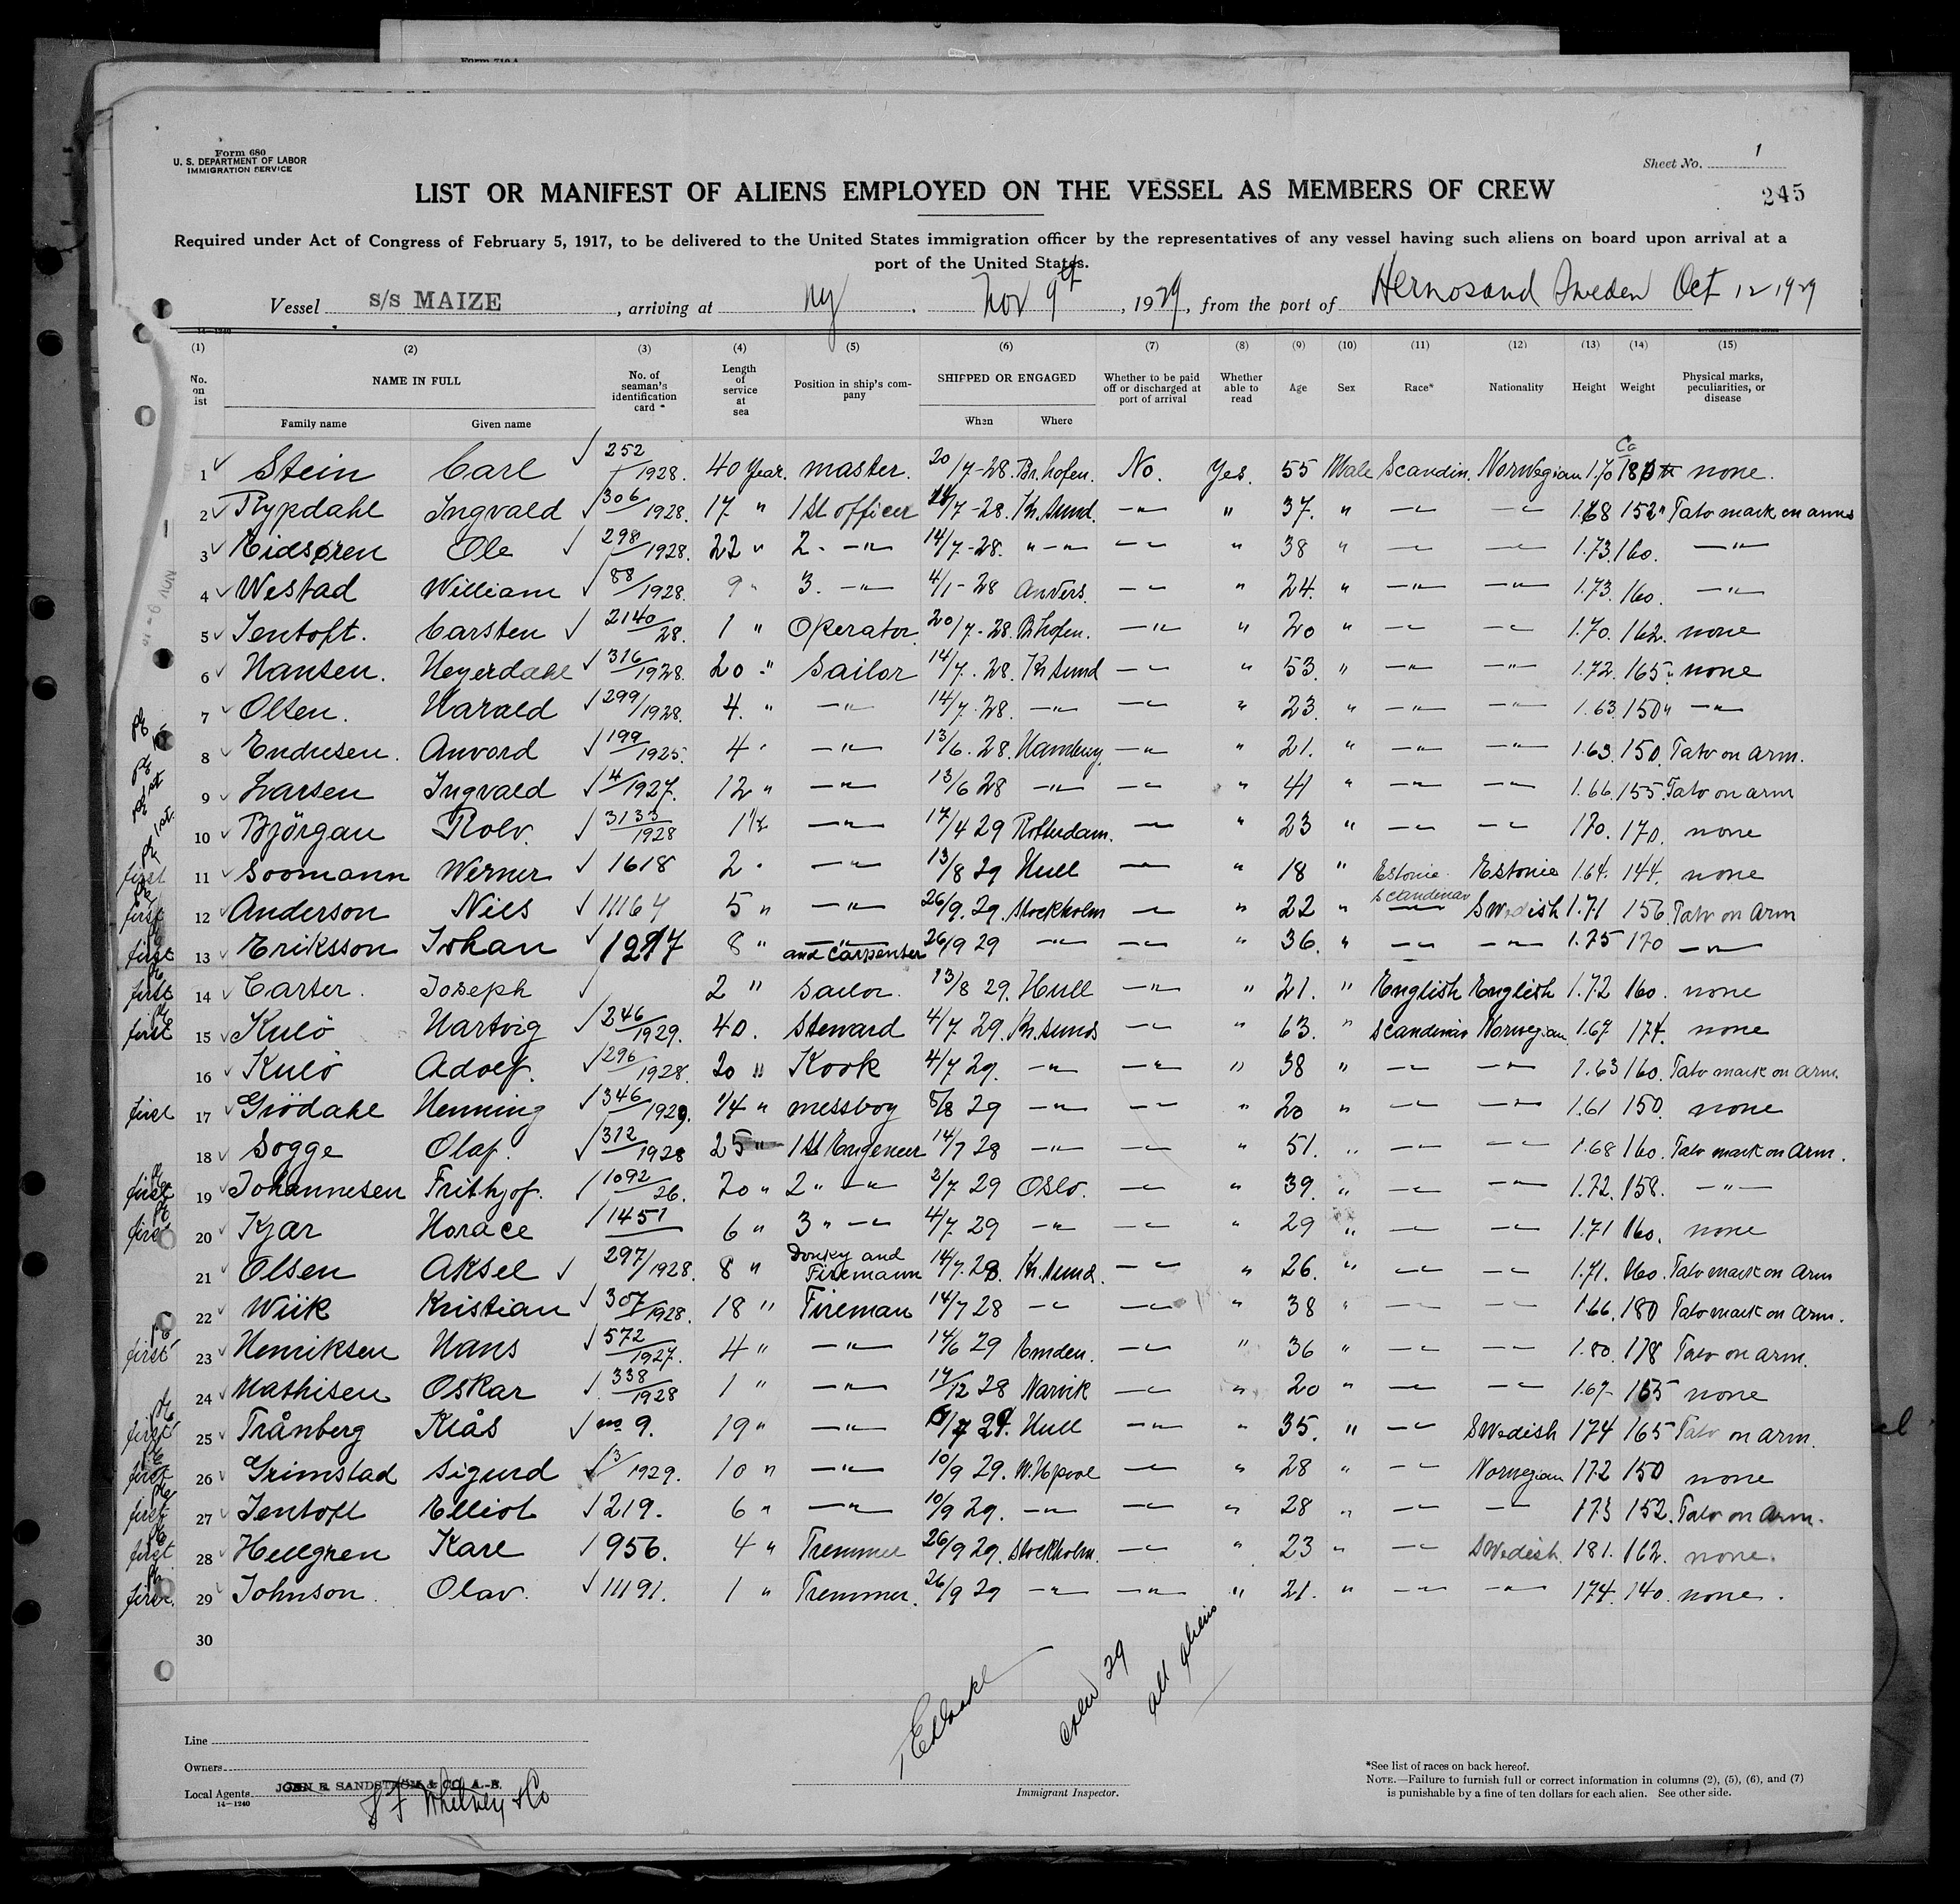 Form 680
U. S. DEPARTMENT OF LABOR
IMMIGRATION SERVICE
Sheet No. 1
245
LIST OR MANIFEST OF ALIENS EMPLOYED ON THE VESSEL AS MEMBERS OF CREW
Required under Act of Congress of February 5, 1917, to be delivered to the United States immigration officer by the representatives of any vessel having such aliens on board upon arrival at a
port of the United States.
Vessel S/S MAIZE, arriving at ny. Nov 9th, 1929, from the port of Hernosand Sweden Oct 12 1929
(1) (2) (3) (4) (5) (6) (7) (8) (9) (10) (11) (12) (13) (14) (15)
No. on list NAME IN FULL Family name Given name No. of seaman's identification card Length of service at sea Position in ship's company SHIPPED OR ENGAGED When Where Whether to be paid off or discharged at port of arrival Whether able to read Age Sex Race* Nationality Height Weight Physical marks, peculiarities, or disease
1 Stein Carl 252/1928. 40 Year. master. 20/7-28. Br.hofen. No. Yes. 55 Male Scandin. Norwegian 1.70 180 none.
2 Rypdahl Ingvald 306/1928. 17 " 1st officer 14/7-28. Kr.sund. -"- " 37. " -"- -"- 1.68 152 " Tato mark on arms
3 Eidsøren Ole 298/1928. 22 " 2. -"- 14/7-28. "-"- -"- " 38 " -"- -"- 1.73. 160. -"-
4 Westad William 88/1928. 9 " 3. -"- 4/1-28 Anvers. -"- " 24. " -"- -"- 1.73. 160. -"-
5 Jentoft. Carsten 2140/28. 1 " Operator 20/7-28. Brhofen. -"- " 20 " -"- -"- 1.70. 162. none
6 Hansen. Heyerdahl 316/1928. 20 " Sailor 14/7.28. Kr sund -"- " 53. " -"- -"- 1.72. 165 " none
7 Olsen. Harald 299/1928. 4. " -"- 14/7.28. -"- -"- " 23. " -"- -"- 1.63. 150 " -"-
8 Endresen. Anvord 199/1925. 4 " -"- 13/6.28. Hamburg -"- " 21. " -"- -"- 1.63. 150. Tato on arm.
9 Larsen Ingvald 4/1927. 12 " -"- 13/6 28 -"- -"- " 41 " -"- -"- 1.66. 155. Tato on arm
10 Björgau Rolv. 3133/1928 1 1/2 -"- 17/4 29 Rotterdam. -"- " 23 " -"- -"- 170. 170. none
first 11 Soomann Werner 1618 2 " -"- 13/8 29 Hull -"- " 18 " Estonie Estonie 1.64. 144. none
first 12 Anderson Niels 11164 5 " -"- 26/9.29. Stockholm -"- " 22 " Scandinav Swedish 1.71 156. Tato on arm
first 13 Eriksson Johan 1297 8 " -"- and Carpenter 26/9 29 -"- -"- " 36. " -"- -"- 1.75 170 -"-
first 14 Carter. Joseph 2 " Sailor. 13/8 29. Hull -"- " 21. " English English 1.72 160. none
first 15 Kulö Hartvig 246/1929. 40. Steward 4/7.29. Kr.sund -"- " 63. " Scandinav Norwegian 1.67 174. none
16 Kulö Adolf. 296/1928. 20 " Kook 4/7 29. -"- -"- " 38 " -"- -"- 1.63 160. Tato mark on arm.
first 17 Grödahl Henning 346/1929. 1/4 " messboy 8/8 29 -"- -"- " 20 " -"- -"- 1.61 150. none
18 Sogge Olaf. 312/1928 25 " 1st Engeneer 14/7 28 -"- -"- " 51. " -"- -"- 1.68 160. Tato mark on arm.
first 19 Johannesen Frithjof. 1092/26. 20 " 2 " -"- 2/7 29 Oslo. -"- " 39. " -"- -"- 1.72. 158. -"-
first 20 Kjær Horace 1451 6 " 3 " -"- 4/7 29 -"- -"- " 29 " -"- -"- 1.71 160. none
21 Olsen Aksel 297/1928. 8 " Donky and Firemann 14/7.28. Kr.sund. -"- " 26. " -"- -"- 1.71. 160. Tato mark on arm
22 Wiik Kristian 307/1928. 18 " Fireman 14/7 28 -"- -"- " 38 " -"- -"- 1.66. 180 Tato mark on arm.
first 23 Henriksen Hans 572/1927. 4 " -"- 14/6 29 Emden. -"- " 36 " -"- -"- 1.80. 178 Tato on arm.
24 Mathisen Oskar 338/1928 1 " -"- 14/12 28 Narvik -"- " 20 " -"- -"- 1.67 165 none
first 25 Trånberg Klås no 9. 19 " -"- Hull -"- " 35. " -"- Swedish 174 165 Tato on arm.
first 26 Grimstad Sigurd 3/1929. 10 " -"- 10/9 29. W.Hpool -"- " 28 " -"- Norwegian 172 150 none
first 27 Jentoft Elliot 219. 6 " -"- 10/9 29. -"- -"- " 28 " -"- -"- 173 152. Tato on arm.
first 28 Hellgren Karl 956. 4 " Tremmer 26/9 29. Stockholm. -"- " 23 " -"- Swedish. 181. 162. none.
first 29 Johnson. Olav. 11191. 1 " Tremmer. 26/9 29 -"- -"- " 21. " -"- -"- 174. 140. none.
30
crew 29
all aliens
Line
Owners
Local Agents JOHN E. SANDSTRÖM & CO. A.-B.
J F Whitney & Co
14-1240
Immigrant Inspector.
*See list of races on back hereof.
NOTE.—Failure to furnish full or correct information in columns (2), (5), (6), and (7)
is punishable by a fine of ten dollars for each alien. See other side.